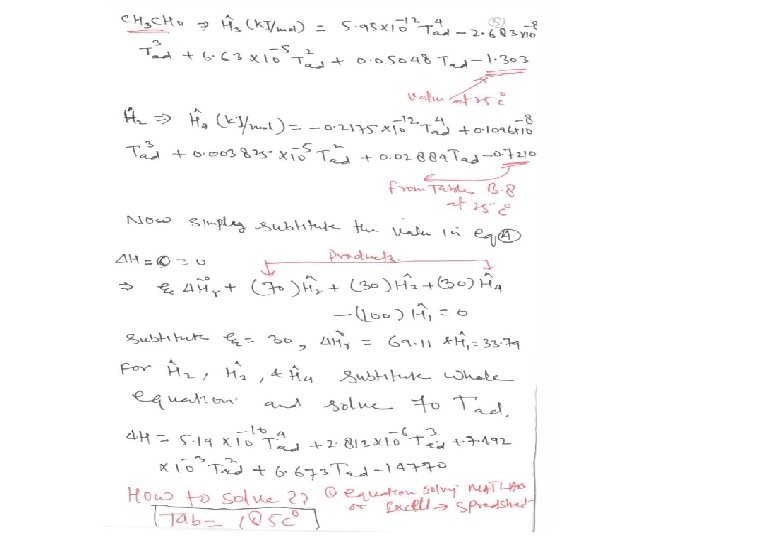 CH3CHO ⇒ Ĥ3 (kJ/mol) = 5.95×10^-12 Tad^4 - 2.683×10^-8
Tad^3 + 6.63×10^-5 Tad^2 + 0.05048 Tad - 1.303
value at 25 c°
H2 ⇒ Ĥ4 (kJ/mol) = -0.2175×10^-12 Tad^4 + 0.1096×10^-8
Tad^3 + 0.003825×10^-5 Tad^2 + 0.02884 Tad - 0.7210
from Table B.8
at 25 c°
Now simply substitute the value in eq (4)
ΔH = Q = 0
Products
⇒ ξ ΔĤr° + (70) Ĥ2 + (30) Ĥ2 + (30) Ĥ4
- (100) Ĥ1 = 0
Substitute ξ = 30, ΔĤr° = 69.11 & Ĥ1 = 33.79
For Ĥ2, Ĥ2, & Ĥ4 substitute whole
equation and solve 70 Tad.
ΔH = 5.19×10^-10 Tad^4 + 2.812×10^-6 Tad^3 + 7.492
×10^-3 Tad^2 + 6.673 Tad - 14770
How to solve ?? ① equation solvy MATLAB
or Excell → spredshet
Tab = 185 c°